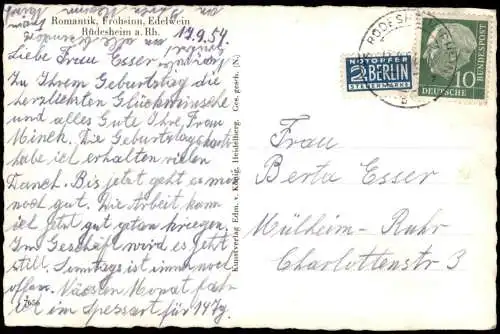 Romantik, Frohsinn, Edelwein
Rüdesheim a. Rh.
19.9.54
Liebe Frau Esser
Zu Ihrem Geburtstag die
herzlichsten Glückwünsche
und alles Gute Ihre Frau
Minck. Die Geburtstagskarte
habe ich erhalten vielen
Danck. Bis jetzt geht es mir
noch gut. Die Arbeit kann
ich jetzt gut getan kriegen.
Im Geschäft wird es jetzt
still. Sonntags ist immer noch
offen. Näcsten Monat fahr
ich im Spessart für 14 Tg.
7656
Kunstverlag Edm. v. König, Heidelberg. Ges. gesch. (N)
NOTOPFER
2 BERLIN
STEUERMARKE
RÜDESHEIM
10
DEUTSCHE BUNDESPOST
Frau
Berta Esser
Mülheim-Ruhr
Charlottenstr 3